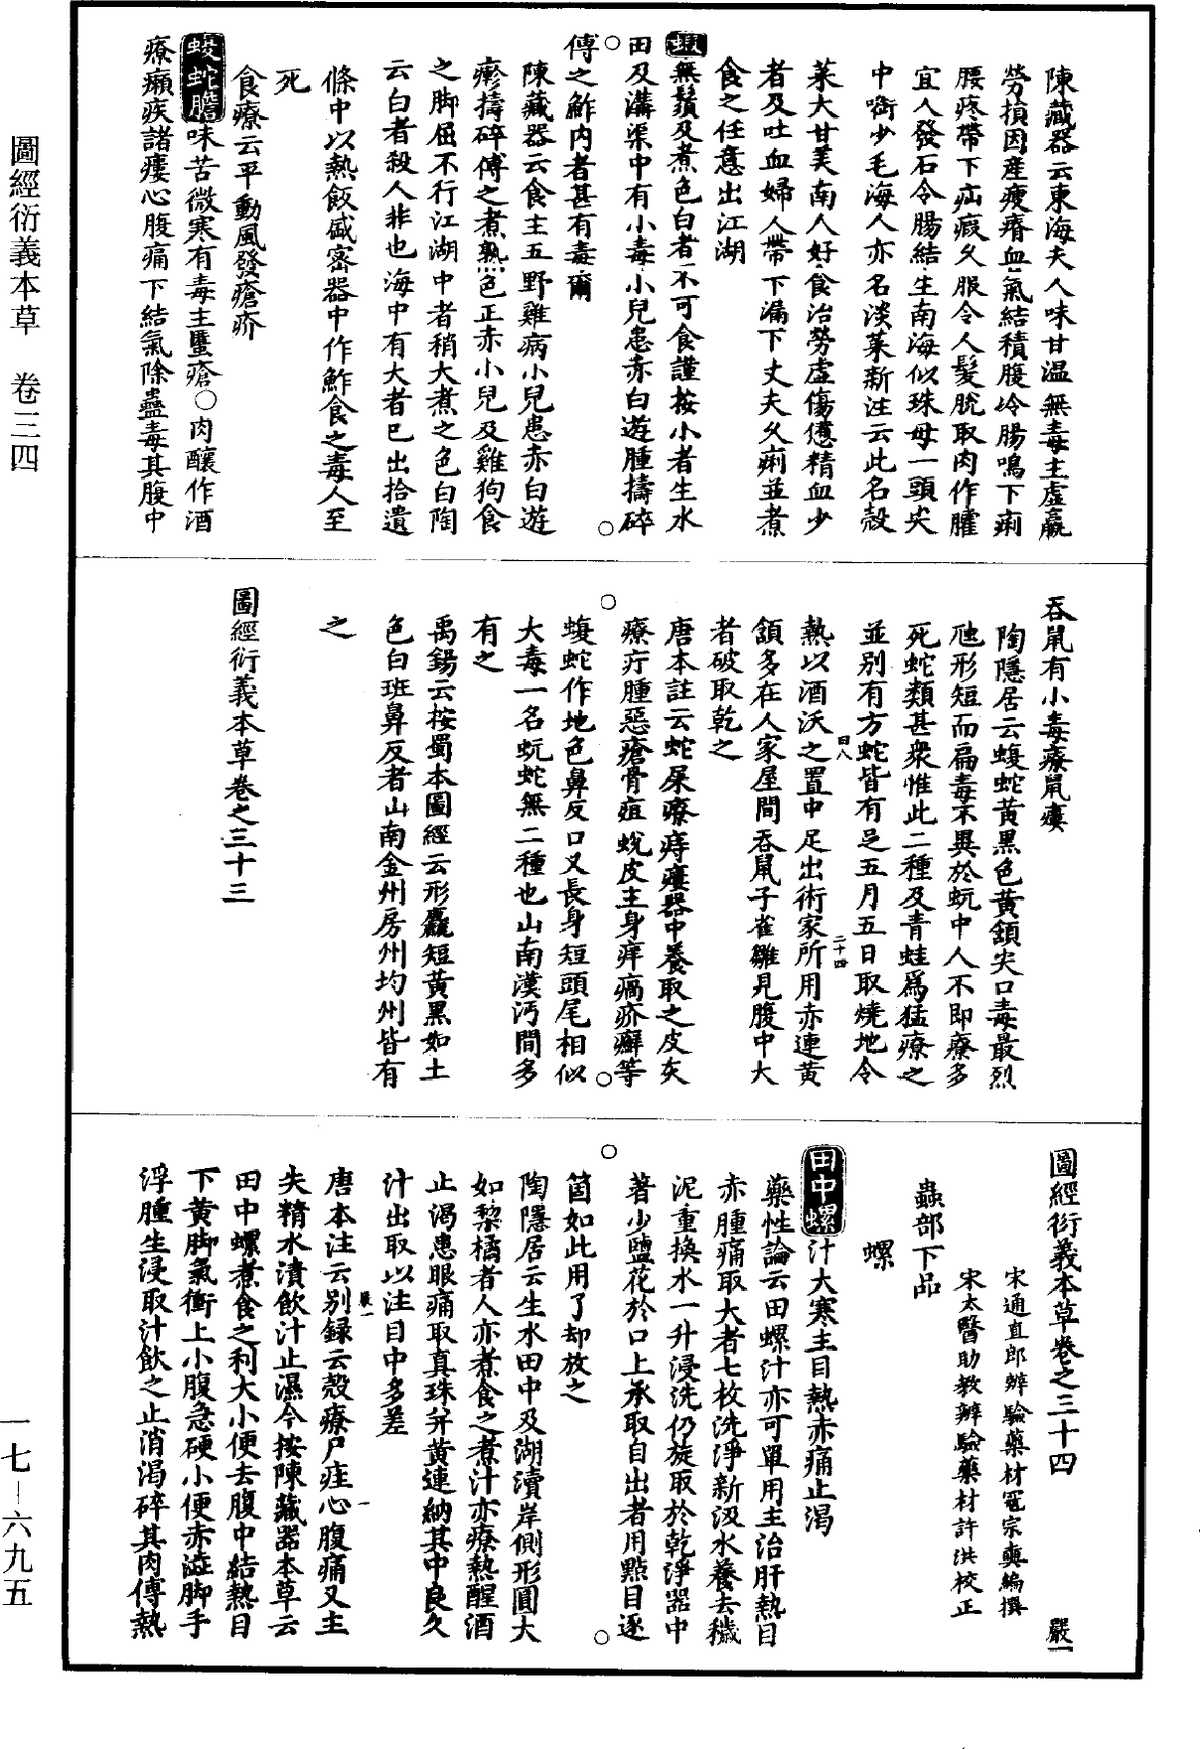 圖經衍義本草　卷三四
陳藏器云東海夫人味甘溫無毒主虛羸
勞損因產瘦瘠血氣結積腹冷腸鳴下痢
腰疼帶下疝瘕久服令人髮脫取肉作臛
宜人發石令腸結生南海似珠母一頭尖
中㗸少毛海人亦名淡菜新注云此名殼
菜大甘美南人好食治勞虛傷憊精血少
者及吐血婦人帶下漏下丈夫久痢並煮
食之任意出江湖
蝦無鬚及煮色白者不可食謹按小者生水
田及溝渠中有小毒小兒患赤白遊腫擣碎
傅之鮓內者甚有毒爾
陳藏器云食主五野雞病小兒患赤白遊
瘮擣碎傅之煮熟色正赤小兒及雞狗食
之脚屈不行江湖中者稍大煮之色白陶
云白者殺人非也海中有大者已出拾遺
條中以熱飯盛密器中作鮓食之毒人至
死
食療云平動風發瘡疥
蝮蛇膽味苦微寒有毒主䘌瘡○肉釀作酒
療癩疾諸瘻心腹痛下結氣除蠱毒其腹中
吞鼠有小毒療鼠瘻
陶隱居云蝮蛇黃黑色黃頷尖口毒最烈
虺形短而扁毒不異於蚖中人不即療多
死蛇類甚衆惟此二種及青蛙爲猛療之
並別有方蛇皆有足五月五日取燒地令
熱以酒沃之置中足出術家所用赤連黃
頷多在人家屋間吞鼠子雀雛見腹中大
者破取乾之
唐本註云蛇屎療痔瘻器中養取之皮灰
療疔腫惡瘡骨疽蛻皮主身痒瘑疥癬等
蝮蛇作地色鼻反口又長身短頭尾相似
大毒一名蚖蛇無二種也山南漢沔間多
有之
禹錫云按蜀本圖經云形麤短黃黑如土
色白班鼻反者山南金州房州均州皆有
之
圖經衍義本草卷之三十三
圖經衍義本草卷之三十四　嚴一
宋通直郎辨驗藥材寇宗奭編撰
宋太醫助教辨驗藥材許洪校正
蟲部下品
螺
田中螺汁大寒主目熱赤痛止渴
藥性論云田螺汁亦可單用主治肝熱目
赤腫痛取大者七枚洗淨新汲水養去穢
泥重換水一升浸洗仍旋取於乾淨器中
著少鹽花於口上承取自出者用點目逐
箇如此用了却放之
陶隱居云生水田中及湖瀆岸側形圓大
如梨橘者人亦煮食之煮汁亦療熱醒酒
止渴患眼痛取真珠并黃連納其中良久
汁出取以注目中多差
唐本注云別録云殼療尸疰心腹痛又主
失精水漬飲汁止濕今按陳藏器本草云
田中螺煮食之利大小便去腹中結熱目
下黃脚氣衝上小腹急硬小便赤澁脚手
浮腫生浸取汁飲之止消渴碎其肉傅熱
一七－六九五